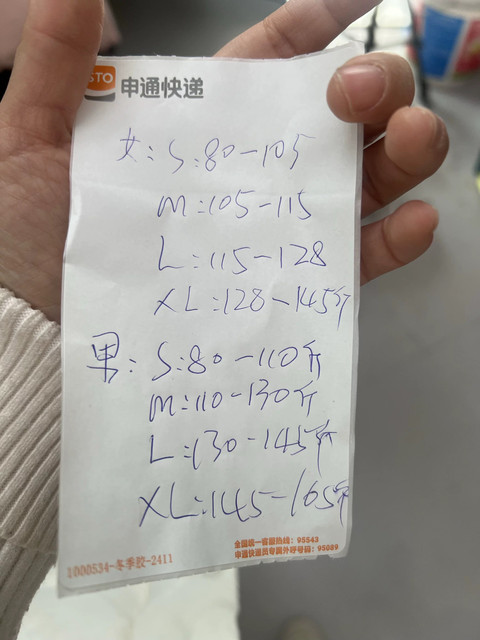 STO 申通快递
女: S:80-105
M:105-115
L:115-128
XL:128-145斤
男: S:80-110斤
M:110-130斤
L:130-145斤
XL:145-165斤
全国统一客服热线: 95543
申通快递员专属外呼号码: 95089
1000534-冬季胶-2411